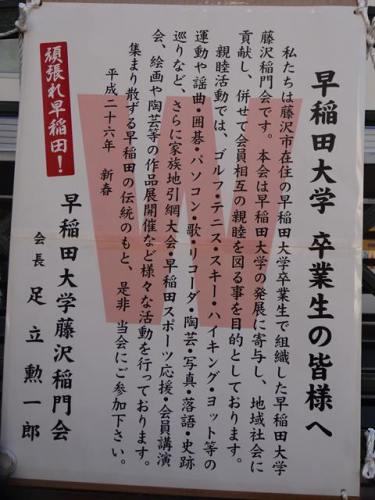 早稲田大学 卒業生の皆様へ
私たちは藤沢市在住の早稲田大学卒業生で組織した早稲田大学
藤沢稲門会です。本会は早稲田大学の発展に寄与し、地域社会に
貢献し、併せて会員相互の親睦を図る事を目的としております。
親睦活動では、ゴルフ・テニス・スキー・ハイキング・ヨット等の
運動や謡曲・囲碁・パソコン・歌・リコーダ・陶芸・写真・落語・史跡
巡りなど、さらに家族地引網大会・早稲田スポーツ応援・会員講演
会、絵画や陶芸等の作品展開催など様々な活動を行っております。
集まり散ずる早稲田の伝統のもと、是非 当会にご参加下さい。
平成二十六年 新春
早稲田大学藤沢稲門会
会長 足立勲一郎
頑張れ早稲田！
W